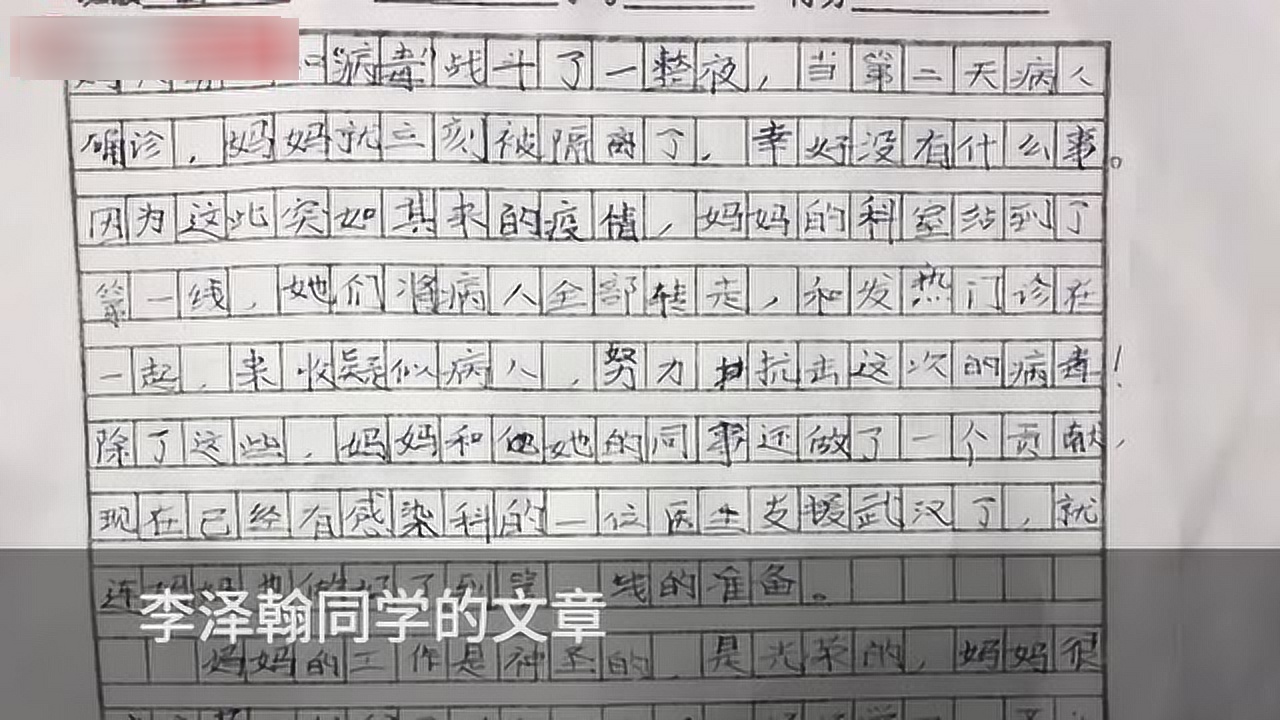 得分
“病毒”战斗了一整夜，当第二天病人
确诊，妈妈就三刻被隔离了，幸好没有什么事。
因为这此突如其来的疫情，妈妈的科室站到了
第一线，她们将病人全部转走，和发热门诊在
一起，来收疑似病人，努力抗击这次的病毒！
除了这些，妈妈和她的同事还做了一个贡献，
现在已经有感染科的一位医生支援武汉了，就
连妈妈也做好了到第一线的准备。
李泽翰同学的文章
妈妈的工作是神圣的，是光荣的，妈妈很